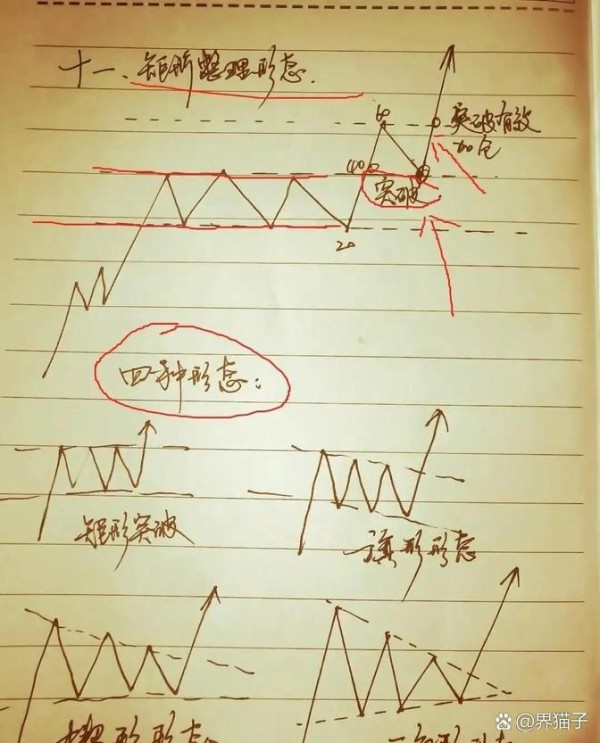 十一、矩形整理形态.
60
突破有效
40
加仓
突破
20
四种形态:
矩形突破
旗形形态
楔形形态.
@界猫子